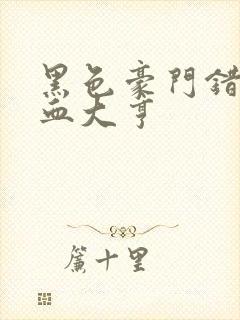 黑色豪門錯
血大亨
簾十里